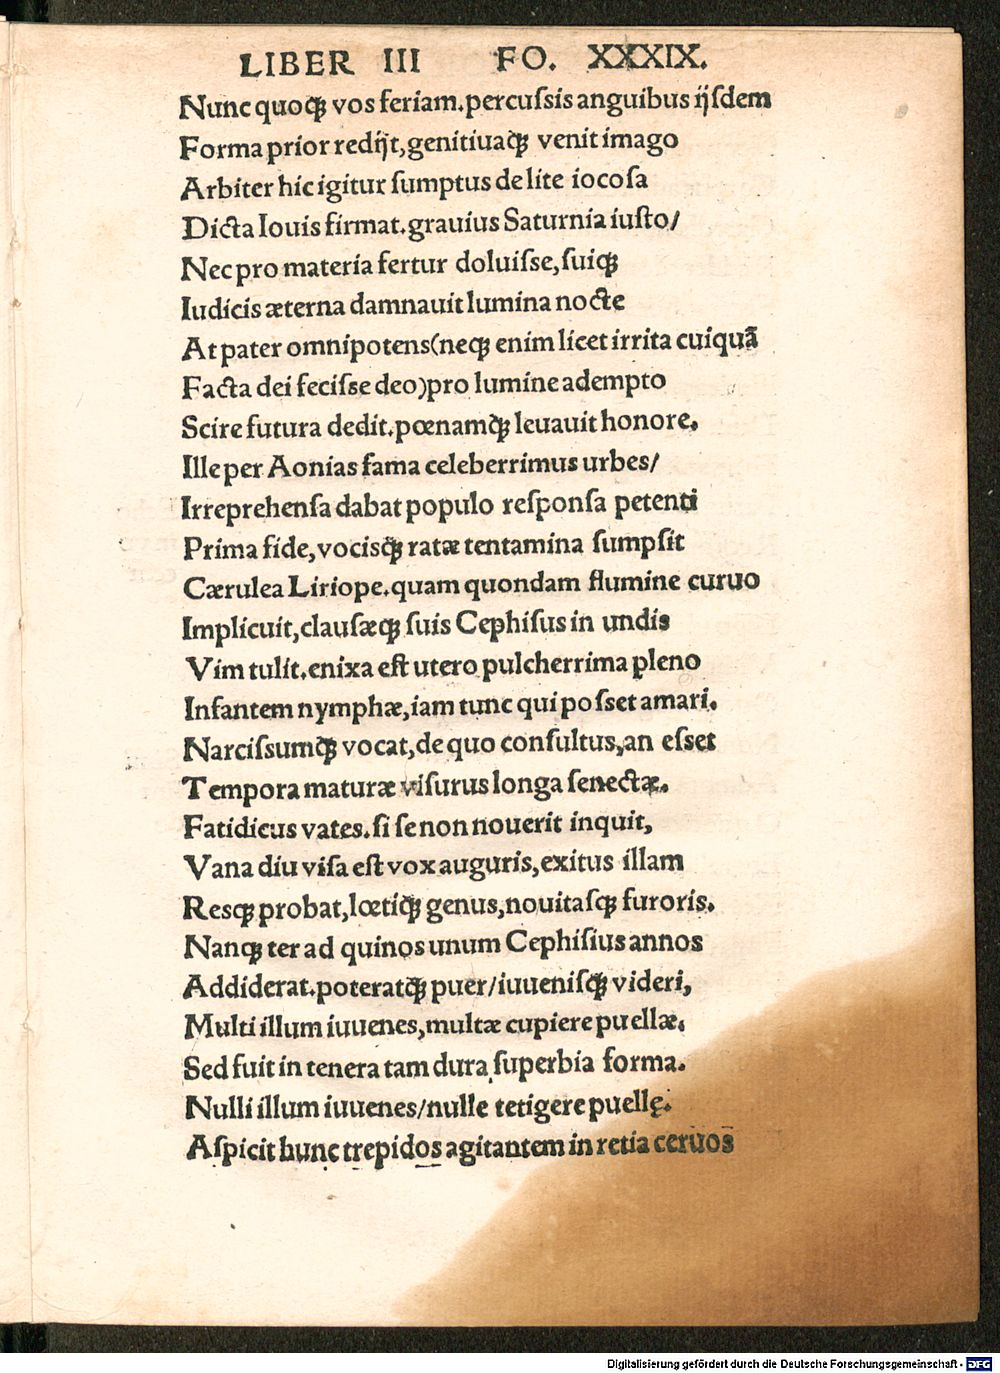 LIBER III FO. XXXIX.
Nunc quoqꝫ vos feriam. percuſsis anguibus ijſdem
Forma prior redijt, genitiuaqꝫ venit imago
Arbiter hic igitur ſumptus de lite iocoſa
Dicta Iouis firmat. grauius Saturnia iuſto/
Nec pro materia fertur doluiſse, ſuiqꝫ
Iudicis æterna damnauit lumina nocte
At pater omnipotens(neqꝫ enim licet irrita cuiquã
Facta dei feciſse deo)pro lumine adempto
Scire futura dedit. pœnamqꝫ leuauit honore.
Ille per Aonias fama celeberrimus urbes/
Irreprehenſa dabat populo reſponſa petenti
Prima fide, vocisqꝫ ratæ tentamina ſumpſit
Cærulea Liriope. quam quondam flumine curuo
Implicuit, clauſæqꝫ ſuis Cephiſus in undis
Vim tulit. enixa eſt utero pulcherrima pleno
Infantem nymphæ, iam tunc qui poſset amari.
Narciſsumqꝫ vocat, de quo conſultus, an eſset
Tempora maturæ viſurus longa ſenectæ.
Fatidicus vates. ſi ſe non nouerit inquit,
Vana diu viſa eſt vox auguris, exitus illam
Resqꝫ probat, lœtiqꝫ genus, nouitaſqꝫ furoris.
Nanqꝫ ter ad quinos unum Cephiſius annos
Addiderat. poteratqꝫ puer/iuueniſqꝫ videri,
Multi illum iuuenes, multæ cupiere puellæ.
Sed fuit in tenera tam dura ſuperbia forma.
Nulli illum iuuenes/nulle tetigere puellę.
Aſpicit hunc trepidos agitantem in retia ceruos
Digitalisierung gefördert durch die Deutsche Forschungsgemeinschaft - DFG